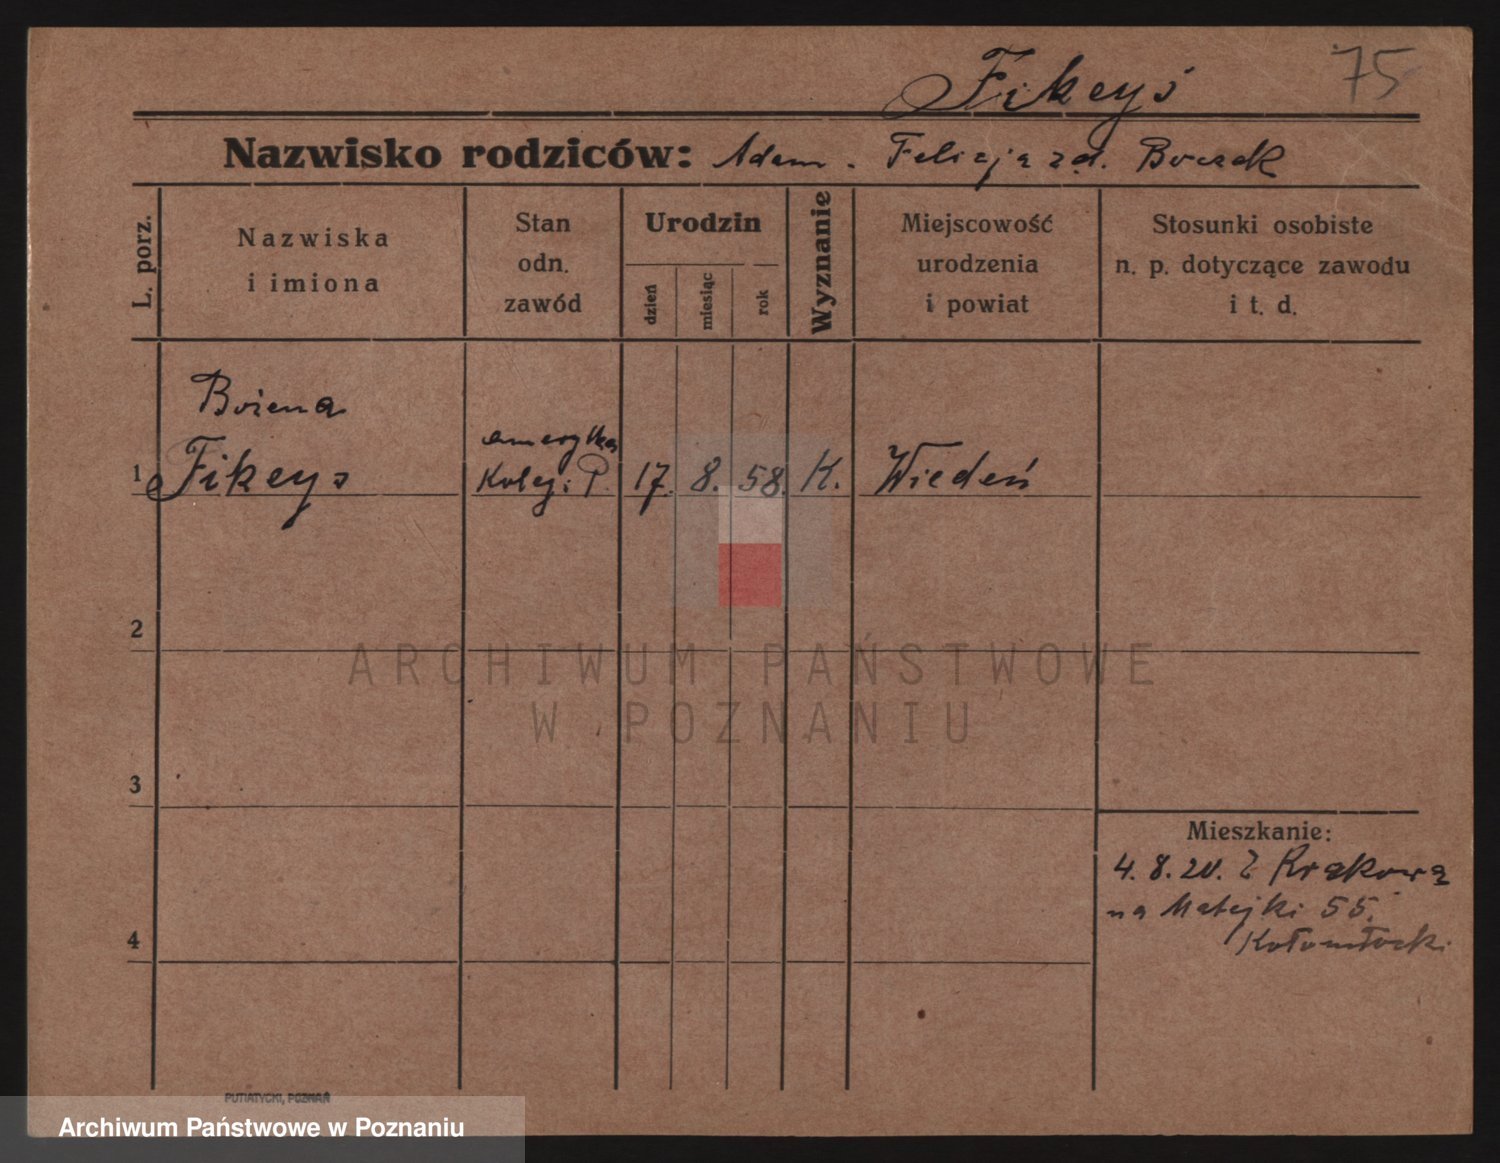 Fikeys 75
Nazwisko rodziców: Adam. Felicja z d. Boczek
L. porz.
Nazwiska
i imiona
Stan
odn.
zawód
Urodzin
dzień
miesiąc
rok
Wyznanie
Miejscowość
urodzenia
i powiat
Stosunki osobiste
n. p. dotyczące zawodu
i t. d.
Bożena
1 Fikeys
Kolej. P. 17. 8. 58. K. Wiedeń
2
3
4
Mieszkanie:
4. 8. 20. Z Krakowa
na Matejki 55.
ARCHIWUM PAŃSTWOWE
W POZNANIU
PUTIATYCKI, POZNAŃ
Archiwum Państwowe w Poznaniu